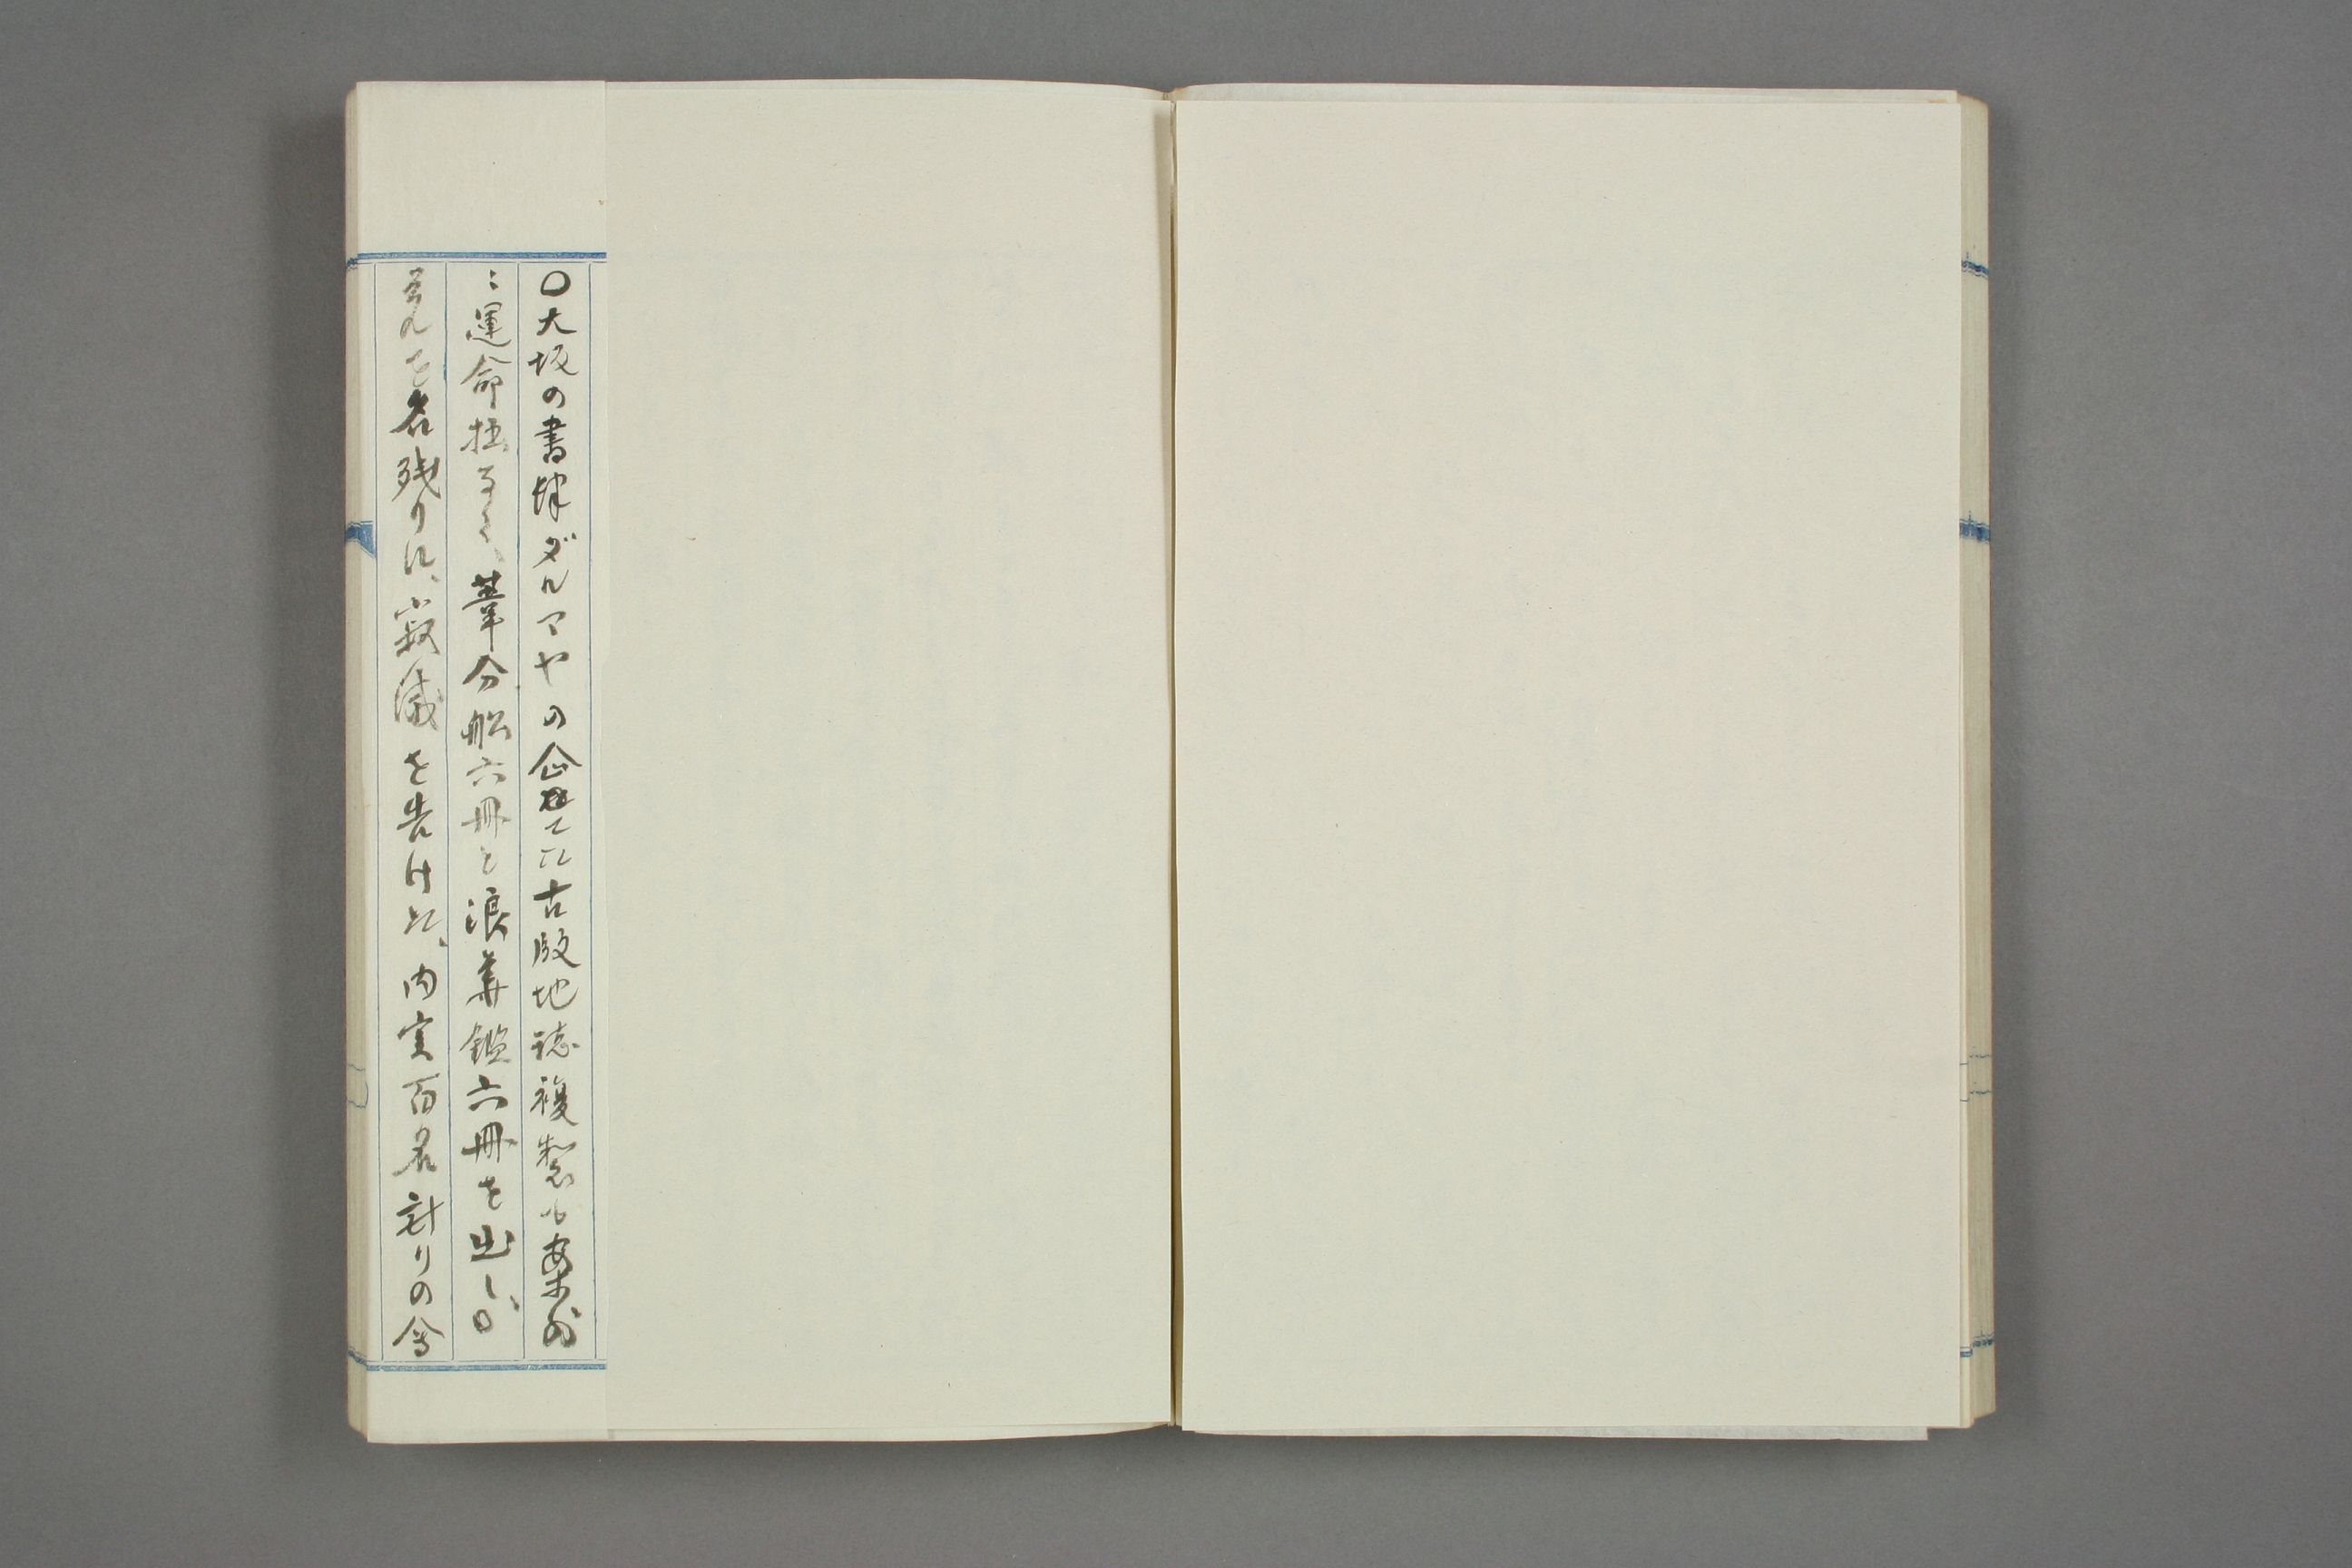 〇大坂の書肆ダルマヤの企てに古版地誌複製も案外
ニ運命拙なく、葦分船六冊と浪華鑑六冊を出し、
それを名残りに、寂滅を告けた、内実百名計りの会